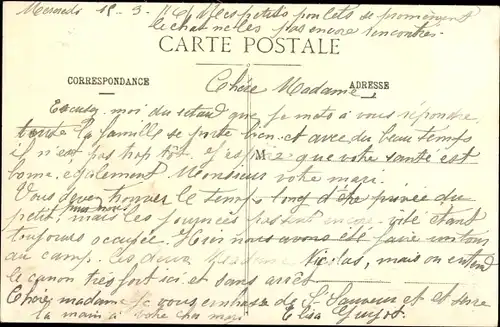 Mercredi 15-3- Mes petits poulets se promènent
le chat ne les pas encore rencontrés
CARTE POSTALE
CORRESPONDANCE
ADRESSE
Chère Madame
Excusez moi du retard que je mets à vous répondre
toute la famille se porte bien et avec du beau temps
il n'est pas trop tôt. J'espère que votre santé est
bonne également Monsieur votre mari.
Vous devez trouver le temps long d'être privée du
petit mais les journées passent vite étant
toujours occupée. Hier nous avons été faire un tour
au camp. les deux Nicolas, mais on entend
le canon très fort ici et sans arrêt
Chère madame je vous embrasse de St Sauveur et et serre
la main à votre cher mari Elsa